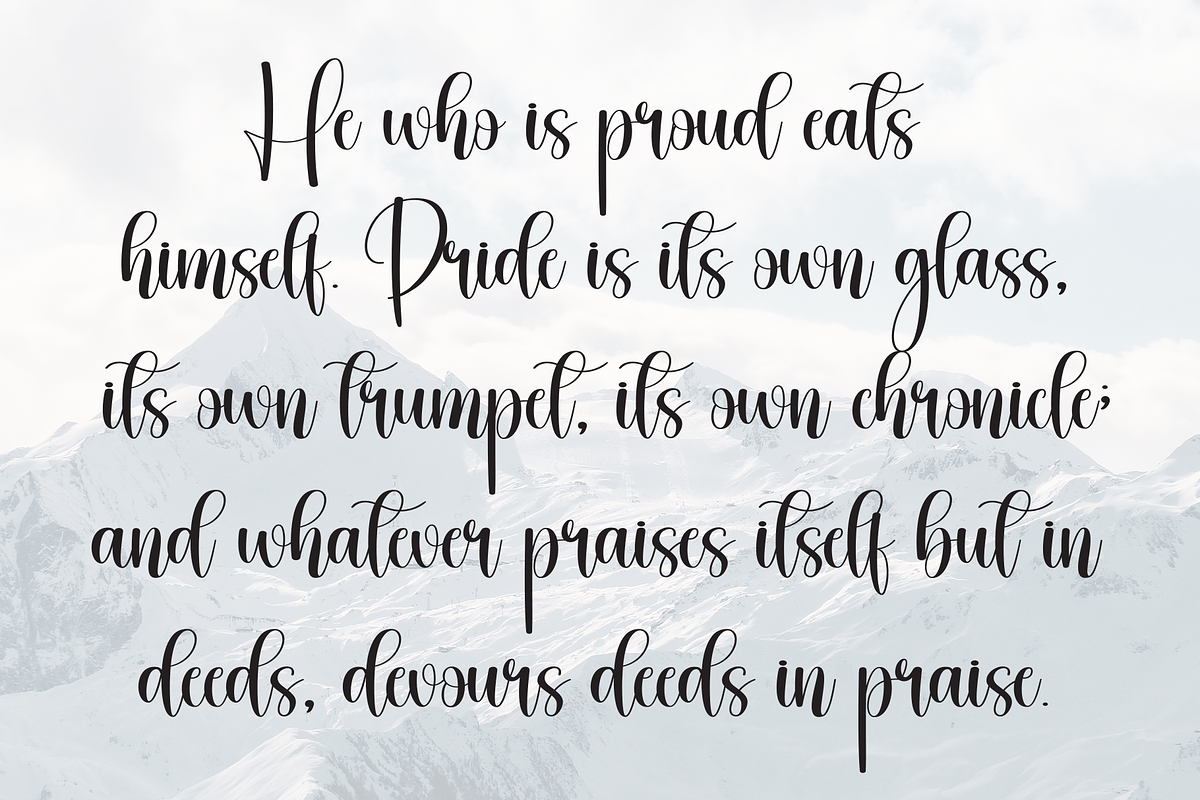 He who is proud eats
himself. Pride is its own glass,
its own trumpet, its own chronicle;
and whatever praises itself but in
deeds, devours deeds in praise.